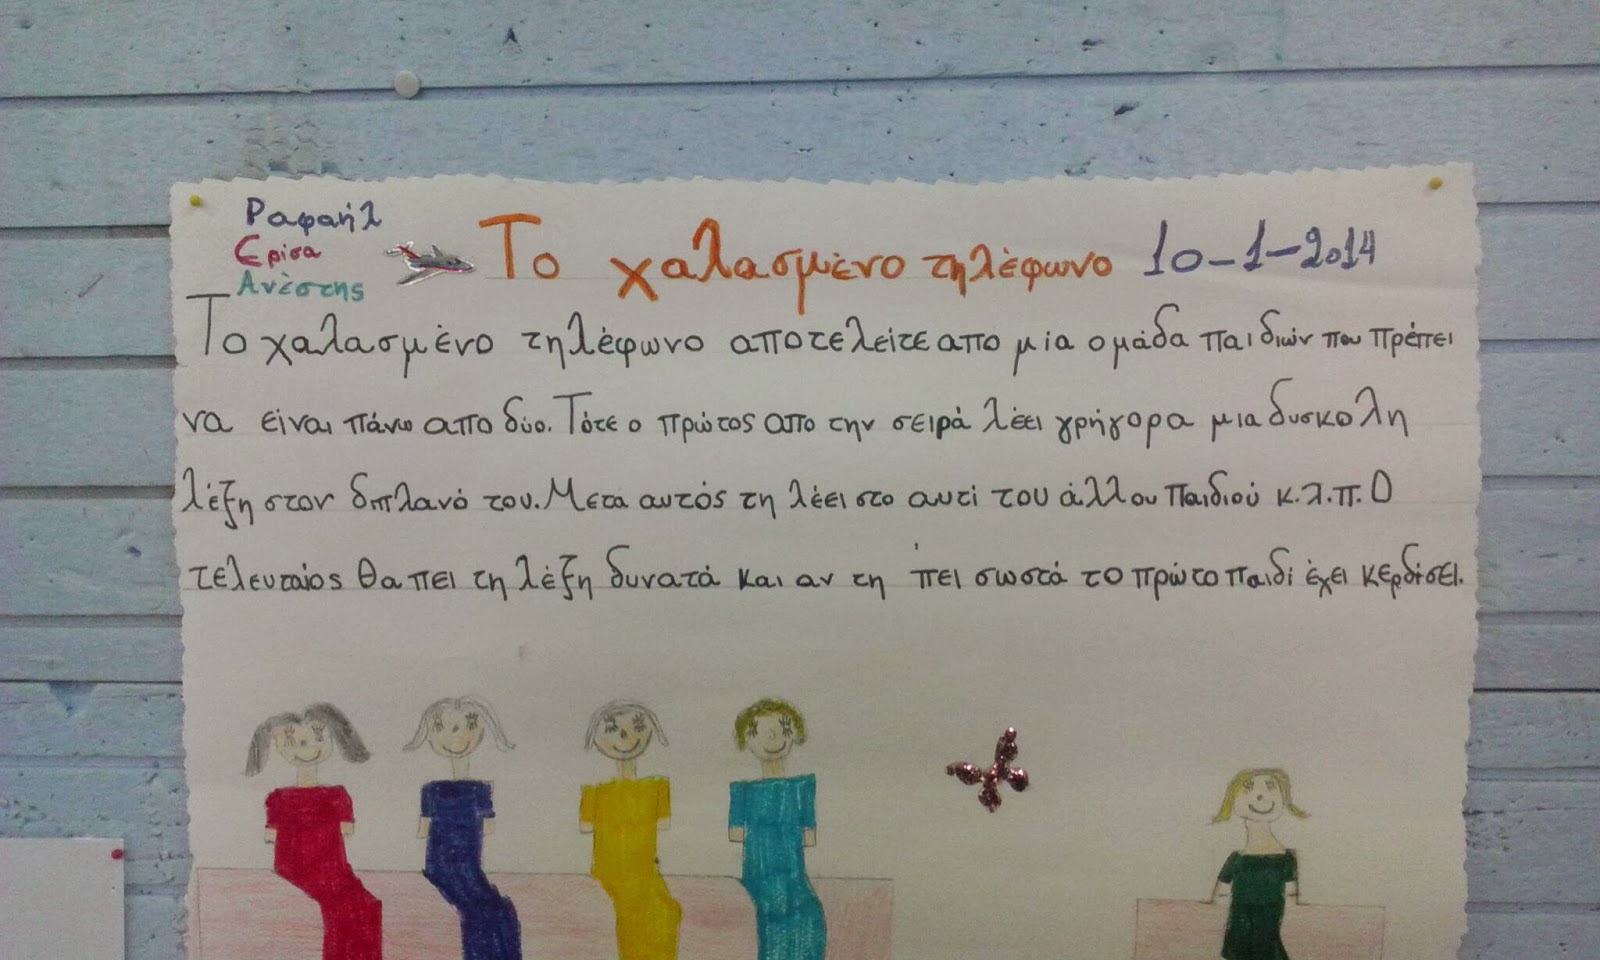 Ραφαήλ
Ερίσα
Ανέστης
Το χαλασμένο τηλέφωνο 10-1-2014
Το χαλασμένο τηλέφωνο αποτελείτε απο μία ομάδα παιδιών που πρέπει
να είναι πάνω απο δύο. Τότε ο πρώτος απο την σειρά λέει γρήγορα μια δυσκολη
λέξη στον διπλανό του. Μετα αυτός τη λέει στο αυτί του άλλου παιδιού κ.λ.π. Ο
τελευταίος θα πει τη λέξη δυνατά και αν τη πει σωστά το πρώτο παιδί έχει κερδίσει.